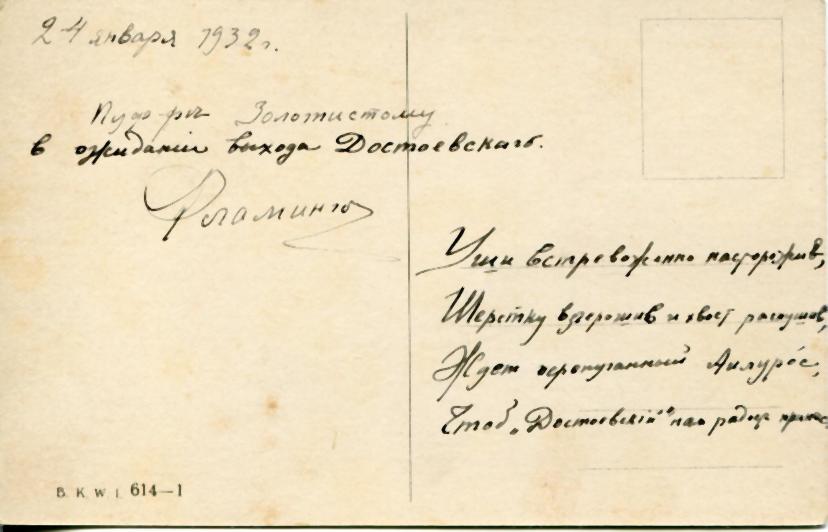 24 января 1932 г.
Пуф-ру Золотистому
в ожиданiи выхода Достоевскаго.
Фламинго
Уши встревоженно насторожив,
Шерстку взъерошив и хвост распушив,
Ждет перепуганный Аилурос,
Чтоб „Достоевскiй" нам радость принес
B. K. W. I. 614—1